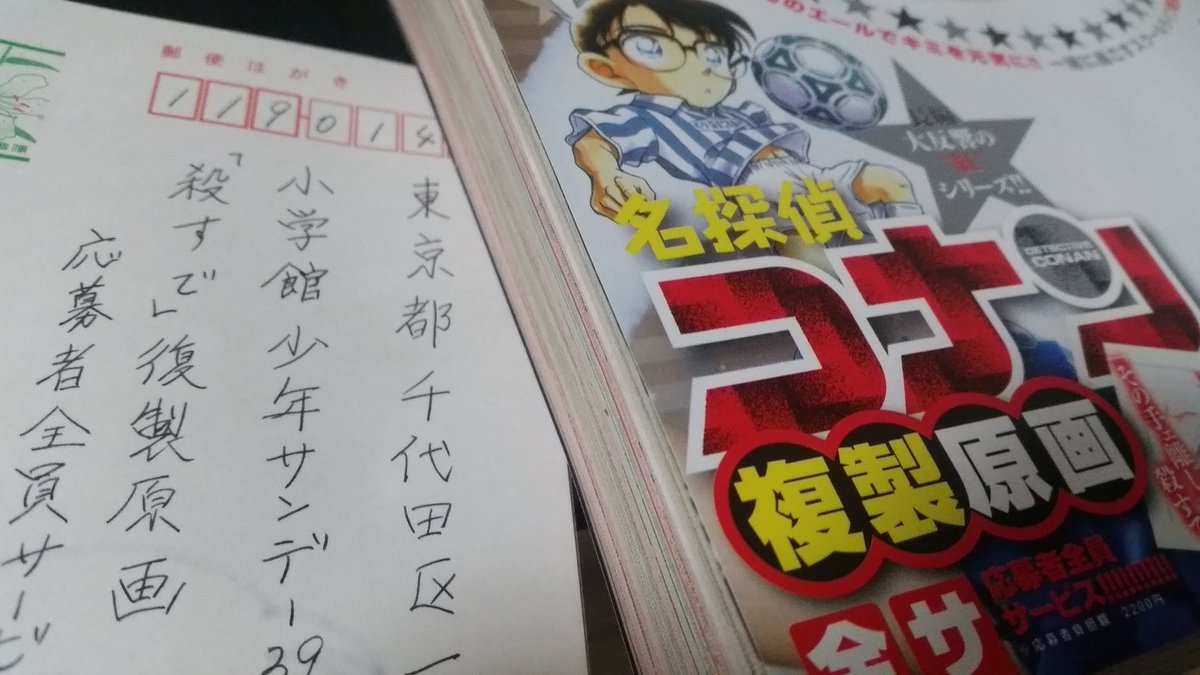 郵便はがき
119-014
東京都千代田区一
小学館 少年サンデー39
「殺すで」復製原画
応募者全員サービ
のエールでキミを元気に!!
大反響の
シリーズ!!
名探偵
コナン
DETECTIVE
CONAN
複製原画
全サ
応募者全員
サービス!!!!!!!!
※応募者負担額 2200円
その手を離し
殺す